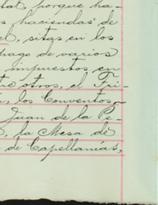 tal, porque ha-
s haciendas de
el, sitas en los
pago de varios
impuestos, en
tre otros, el Tri-
los Conventos
Juan de la Pe-
, la Mesa de
de Capellanías,